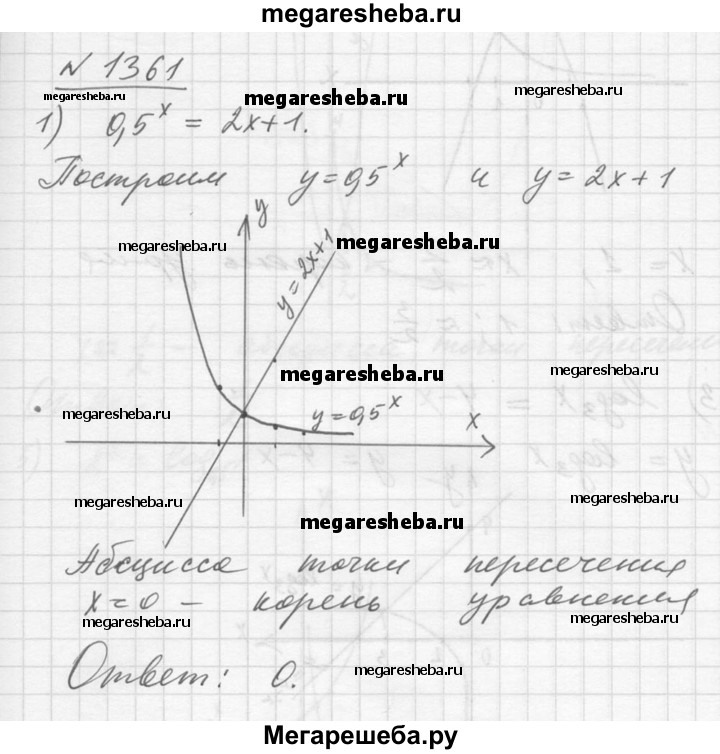 megaresheba.ru
N 1361
megaresheba.ru
megaresheba.ru
1) 0,5^x = 2x+1.
Построим y=0,5^x и y=2x+1
y
megaresheba.ru
megaresheba.ru
y=2x+1
megaresheba.ru
megaresheba.ru
megaresheba.ru
y=0,5^x
x
megaresheba.ru
megaresheba.ru
megaresheba.ru
Абсцисса точки пересечения
x=0 – корень уравнения
megaresheba.ru
megaresheba.ru
Ответ: 0.
megaresheba.ru
Мегарешеба.ру